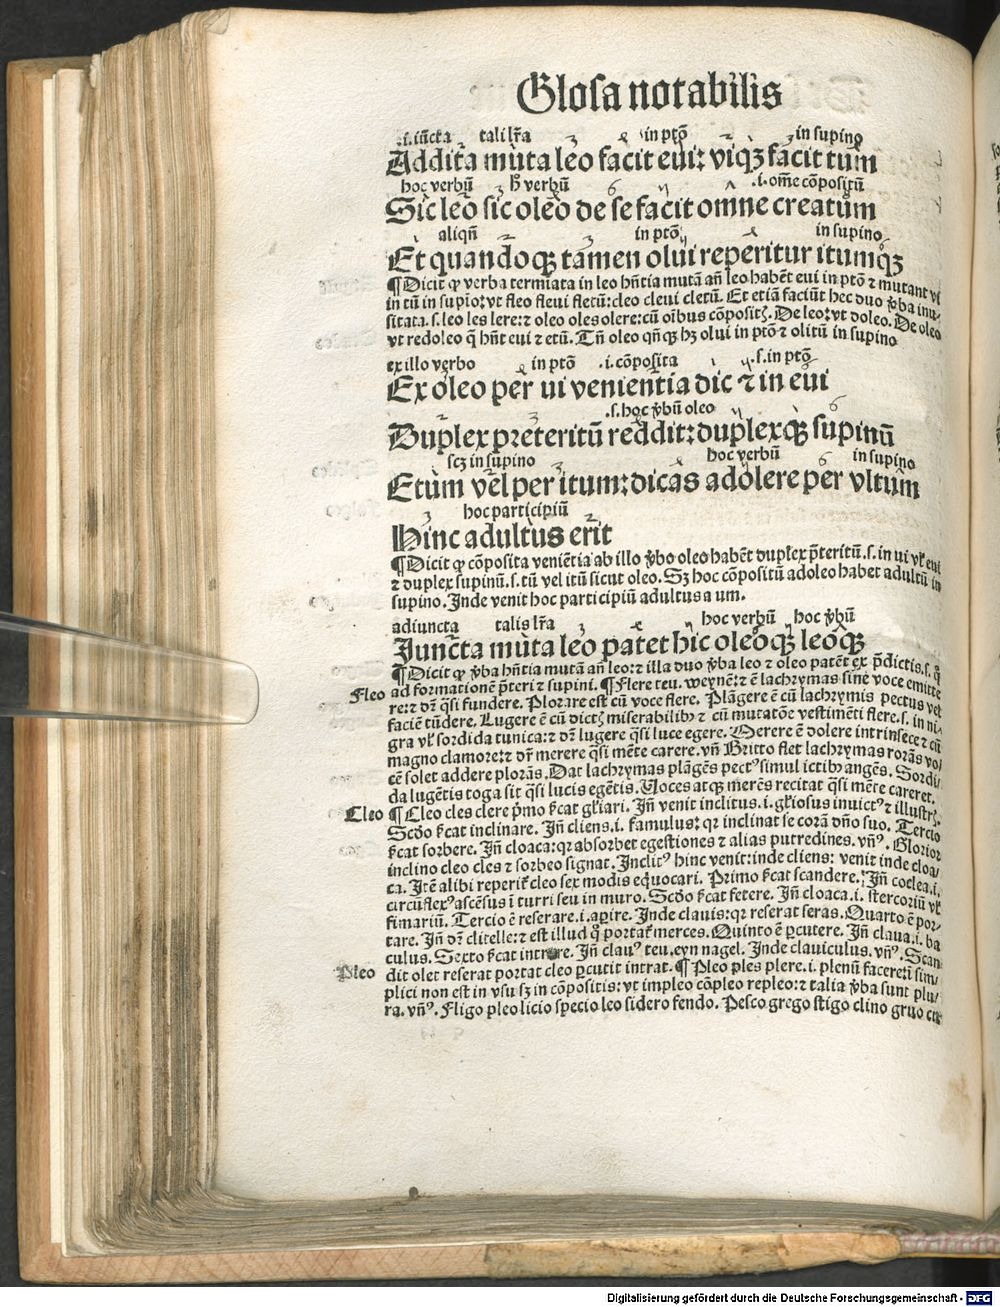 Glosa notabilis
.s. iūcta tali lr̄a in ptō in supino
Addita muta leo facit eui: viqꝫ facit tum
hoc verbū h̄ verbū .i. om̄e cōpositū
Sic leo sic oleo de se facit omne creatum
aliqn̄ in ptō in supino
Et quandoqꝫ tamen olui reperitur itumqꝫ
¶Dicit ꝙ verba termīata in leo hn̄tia mutā an̄ leo habēt eui in ptō ⁊ mutant vi
in tū in supīo: vt fleo fleui fletū: cleo cleui cletū. Et etiā faciūt hec duo v̄ba inu⸗
sitata .s. leo les lere: ⁊ oleo oles olere: cū oībus cōpositꝭ. De leo: vt doleo. De oleo
vt redoleo q̄ hn̄t eui ⁊ etū. Tn̄ oleo qn̄qꝫ hꝫ olui in ptō ⁊ olitū in supino
ex illo verbo in ptō .i. cōposita .s. in ptō
Ex oleo per ui venientia dic ⁊ in eui
.s. hoc v̄bū oleo
Duplex preteritū reddit: duplexqꝫ supinū
scꝫ in supino hoc verbū in supino
Etum vel per itum: dicas adolere per vltum
hoc participiū
Hinc adultus erit
¶Dicit ꝙ cōposita veniētia ab illo v̄bo oleo habēt duplex p̄teritū .s. in ui vl̓ eui
⁊ duplex supinū .s. tū vel itū sicut oleo. Sꝫ hoc cōpositū adoleo habet adultū in
supino. Inde venit hoc participiū adultus a um.
adiuncta talis lr̄a hoc verbū hoc v̄bū
Iuncta muta leo patet hic oleoqꝫ leoqꝫ
¶Dicit ꝙ v̄ba hn̄tia mutā an̄ leo: ⁊ illa duo v̄ba leo ⁊ oleo patēt ex p̄dictis .s. q̄
Fleo ad formationē p̄teri ⁊ supini. ¶Flere teu. weynē: ⁊ ē lachrymas sine voce emitte
re: ⁊ dr̄ qsi fundere. Plorare est cū voce flere. Plāgere ē cū lachrymis pectus vel
faciē tūdere. Lugere ē cū dictꝭ miserabilibꝫ ⁊ cū mutatōe vestimēti flere .s. in ni⸗
gra vl̓ sordida tunica: ⁊ dr̄ lugere qsi luce egere. Merere ē dolere intrinsece ⁊ cū
magno clamore: ⁊ dr̄ merere qsi mēte carere. vn̄ Britto flet lachrymas rorās vo⸗
cē solet addere plorās. Dat lachrymas plāgēs pectꝰ simul ictibꝫ angēs. Sordi⸗
da lugētis toga sit qsi lucis egētis. Voces atqꝫ merēs recitat qsi mēte careret.
Cleo ¶Cleo cles clere p̄mo fi̓cat gl̓iari. In̄ venit inclitus .i. gl̓iosus inuictꝰ ⁊ illustrꝭ.
Scd̄o fi̓cat inclinare. In̄ cliens .i. famulus: qr inclinat se corā dn̄o suo. Tercio
fi̓cat sorbere. In̄ cloaca: qr absorbet egestiones ⁊ alias putredines. vn̄ꝰ. Glorior
inclino cleo cles ⁊ sorbeo signat. Inclitꝰ hinc venit: inde cliens: venit inde cloa⸗
ca. Itē alibi reperit̓ cleo sex modis equocari. Primo fi̓cat scandere. In̄ coclea .i.
circūflexꝰ ascēsus ī turri seu in muro. Scd̄o fi̓cat fetere. In̄ cloaca .i. stercoriū vl̓
fimariū. Tercio ē reserare .i. apire. Inde clauis: qr reserat seras. Quarto ē por⸗
tare. In̄ dr̄ clitelle: ⁊ est illud qꝫ portat̓ merces. Quinto ē pcutere. In̄ claua .i. ba
culus. Sexto fi̓cat intrare. In̄ clauꝰ teu. eyn nagel. Inde clauiculus. vn̄ꝰ. Scan
Pleo dit olet reserat portat cleo pcutit intrat. ¶Pleo ples plere .i. plenū facere: ī sim⸗
plici non est in vsu sꝫ in cōpositis: vt impleo cōpleo repleo: ⁊ talia v̄ba sunt plu⸗
ra. vn̄ꝰ. Fligo pleo licio specio leo sidero fendo. Pesco grego stigo clino gruo
Digitalisierung gefördert durch die Deutsche Forschungsgemeinschaft - DFG